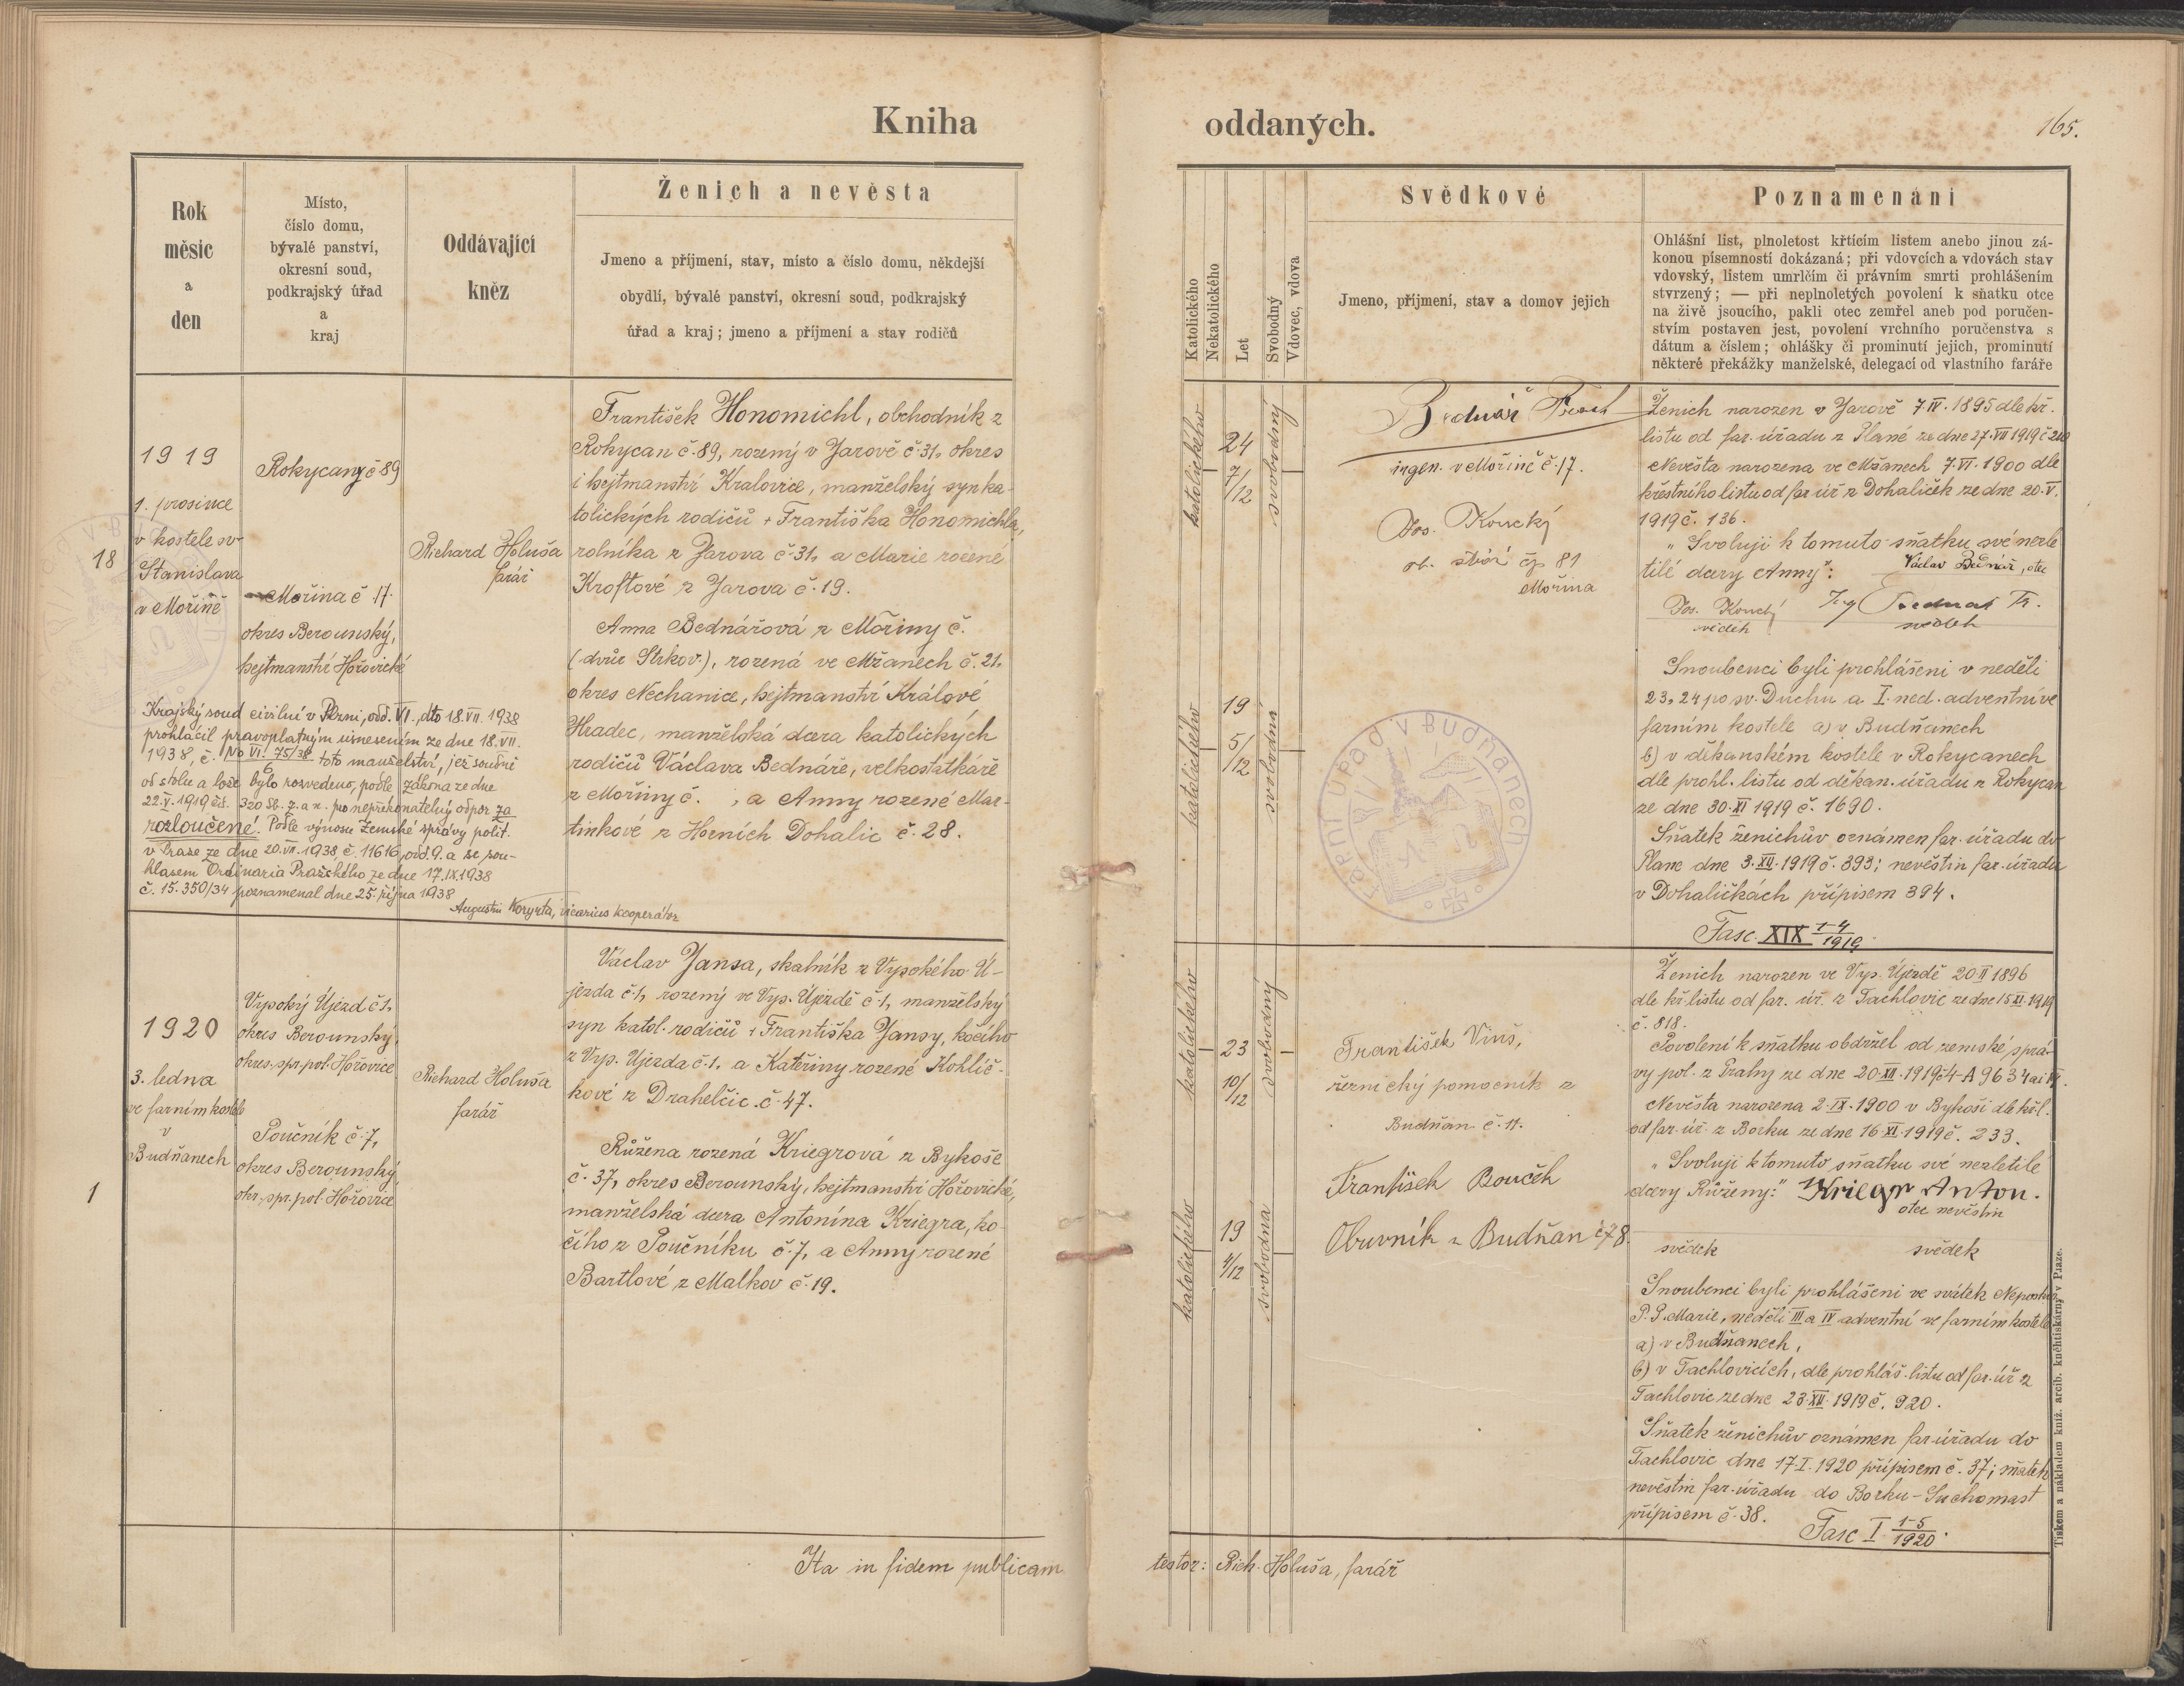 Kniha oddaných.
165.
Rok
měsíc
a
den
Místo,
číslo domu,
bývalé panství,
okresní soud,
podkrajský úřad
a
kraj
Oddávající
kněz
Ženich a nevěsta
Jmeno a příjmení, stav, místo a číslo domu, někdejší
obydlí, bývalé panství, okresní soud, podkrajský
úřad a kraj; jmeno a příjmení a stav rodičů
Katolického
Nekatolického
Let
Svobodný
Vdovec, vdova
Svědkové
Jmeno, příjmení, stav a domov jejich
Poznamenání
Ohlášní list, plnoletost křtícím listem anebo jinou zá-
konou písemností dokázaná; při vdovcích a vdovách stav
vdovský, listem umrlčím či právním smrti prohlášením
stvrzený; — při neplnoletých povolení k sňatku otce
na živě jsoucího, pakli otec zemřel aneb pod poručen-
stvím postaven jest, povolení vrchního poručenstva s
dátum a číslem; ohlášky či prominutí jejich, prominutí
některé překážky manželské, delegací od vlastního faráře
18
1919
1. prosince
v kostele sv.
Stanislava
v Mořině
Rokycany č 89
Mořina č 17.
okres Berounský,
hejtmanství Hořovické
Richard Holuša
farář
František Honomichl, obchodník z
Rokycan č. 89, rozený v Jarově č. 31, okres
i hejtmanství Kralovice, manželský syn ka-
tolických rodičů + Františka Honomichla,
rolníka z Jarova č. 31, a Marie rozené
Kroftové z Jarova č. 19.
Anna Bednářová z Mořiny č.
(dvůr Strkov.), rozená ve Mžanech č. 21,
okres Nechanice, hejtmanství Králové
Hradec, manželská dcera katolických
rodičů Václava Bednáře, velkostatkáře
z Mořiny č. , a Anny rozené Mar-
tinkové z Horních Dohalic č. 28.
Krajský soud civilní v Plzni, odd. VI., dto 18. VII. 1938
prohlásil pravoplatným usnesením ze dne 18. VII.
1938, č. No VI. 75/38 toto manželství, jež soudně
6
od stolu a lože bylo rozvedeno, podle zákona ze dne
22. V. 1919 čís. 320 Sb. z. a n. pro nepřekonatelný odpor za
rozloučené. Podle výnosu Zemské správy polit.
v Praze ze dne 20. VII. 1938, č. 11616, odd. 9. a se sou-
hlasem Ordinaria Pražského ze dne 17. IX. 1938
č. 15.350/34 poznamenal dne 25. října 1938
Augustin Koryta, vicarius kooperátor
katolického
24
7/12
svobodný
katolického
19
5/12
svobodná
ingen. v Mořině č. 17.
Jos. Koucký
čp 81
Mořina
FARNÍ ÚŘAD V BUDŇANECH
Ženich narozen v Jarově 7. IV. 1895 dle kř.
listu od far. úřadu z Plané ze dne 27. VII 1919 č
Nevěsta narozena ve Mžanech 7. VI. 1900 dle
křestního listu od far. úř z Dohaliček ze dne 20. V.
1919 č. 136.
„Svoluji k tomuto sňatku své nezle
tilé dcery Anny“: Václav Bednář, otec
Jos. Koucký Ing Bednář Fr.
svědek svědek
Snoubenci byli prohlášeni v neděli
23, 24 po sv. Duchu a I. ned. adventní ve
farním kostele a) v Budňanech
b) v děkanském kostele v Rokycanech
dle prohl. listu od děkan. úřadu z Rokycan
ze dne 30. XI 1919 č. 1690.
Sňatek ženichův oznámen far. úřadu do
Plane dne 3. XII. 1919 č. 393; nevěstin far. úřadu
v Dohaličkách přípisem 394.
Fasc. XIX 1-4/1919
1
1920
3. ledna
ve farním kostele
v
Budňanech
Vysoký Újezd č 1,
okres Berounský,
okres. spr. pol. Hořovice
Poučník č. 7,
okres Berounský,
okr. spr. pol. Hořovice
Richard Holuša
farář
Václav Jansa, skalník z Vysokého Ú-
jezda č. 1, rozený ve Vys. Újezdě č. 1, manželský
syn katol. rodičů + Františka Jansy, kočího
z Vys. Újezda č. 1, a Kateřiny rozené Kohlíč-
kové z Drahelčic č. 47.
Růžena rozená Kriegrová z Bykoše
č. 37, okres Berounský, hejtmanství Hořovické,
manželská dcera Antonína Kriegra, ko-
čího z Poučníku č. 7, a Anny rozené
Bartlové z Malkov č. 19.
katolického
23
10/12
svobodný
katolického
19
4/12
svobodná
František Vinš,
řeznický pomocník z
Budňan č. 11.
František Bouček
Obuvník z Budňan č 78.
Ženich narozen ve Vys. Újezdě 20 II 1896
dle kř. listu od far. úř. z Tachlovic ze dne 15 XI. 1919
č. 818.
Povolení k sňatku obdržel od zemské sprá-
vy pol. z Prahy ze dne 20. XII. 1919 č 4-A 9634
Nevěsta narozena 2. IX. 1900 v Bykoši dle kř. l.
od far. úř. z Borku ze dne 16. XI. 1919 č. 233.
„Svoluji k tomuto sňatku své nezletilé
dcery Růženy:“ Kriegr Anton.
otec nevěstin
svědek svědek
Snoubenci byli prohlášeni ve svátek Neposkv.
P. P. Marie, neděli III a IV adventní ve farním kostele
a) v Budňanech,
b) v Tachlovicích, dle prohláš. listu od far. úř z
Tachlovic ze dne 23. XII. 1919 č. 920.
Sňatek ženichův oznámen far. úřadu do
Tachlovic dne 17. I. 1920 přípisem č. 37; sňatek
nevěstin far. úřadu do Borku-Suchomast
přípisem č. 38.
Fasc I 1-5/1920.
Ita in fidem publicam testor: Rich. Holuša, farář
Tiskem a nákladem kníž. arcib. knihtiskárny v Praze.